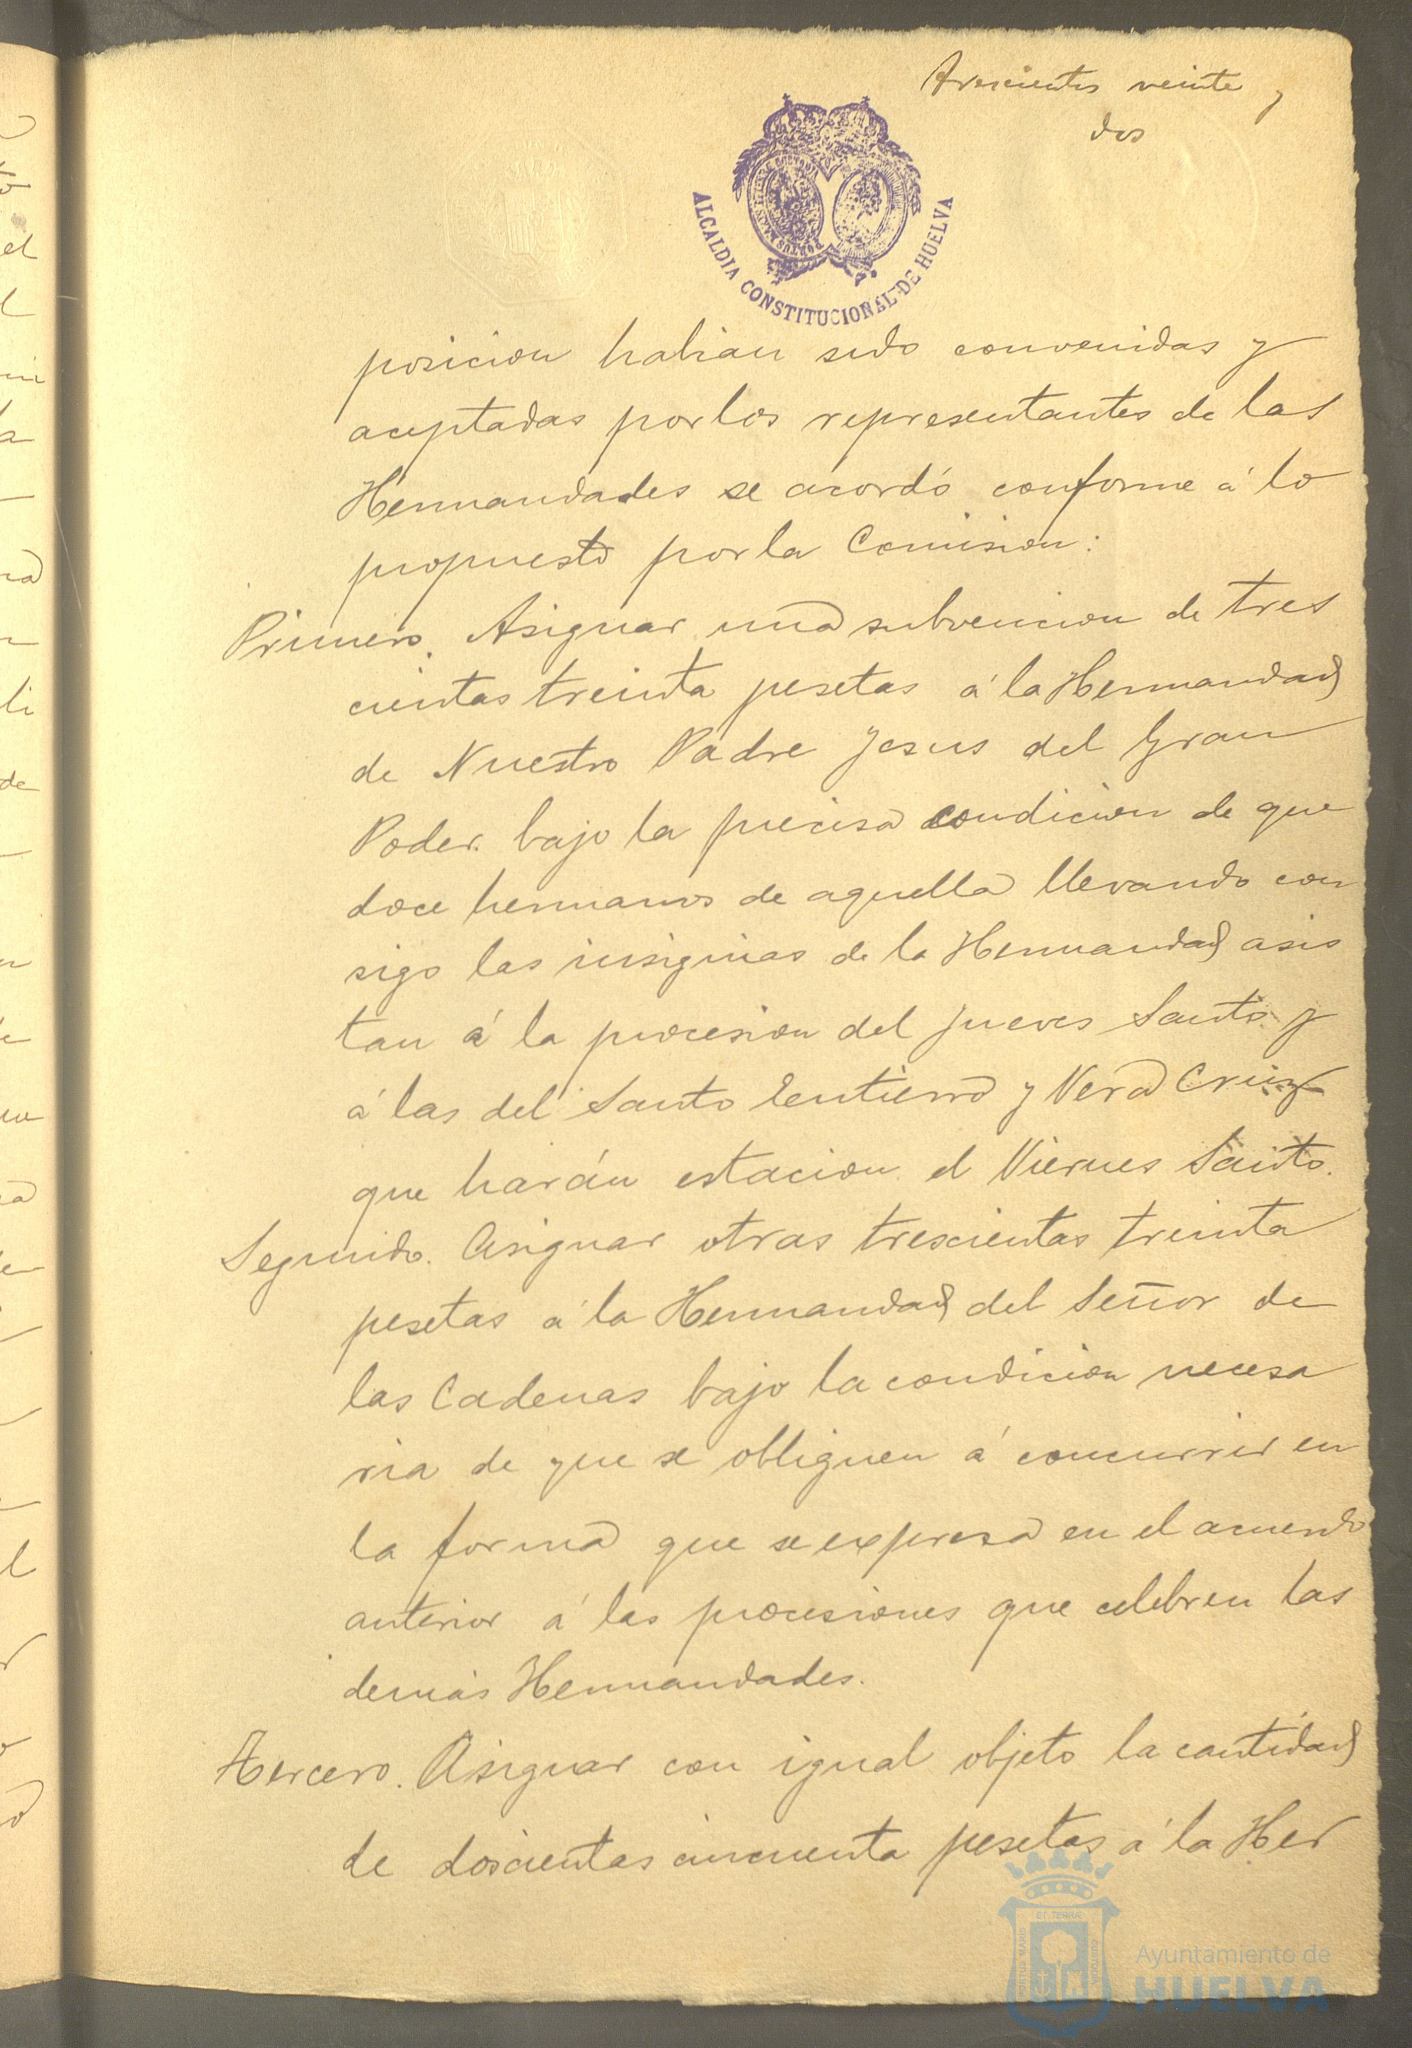 Trescientos veinte y
dos
ALCALDIA CONSTITUCIONAL DE HUELVA
posicion habian sido convenidas y
aceptadas por los representantes de las
Hermandades se acordó conforme á lo
propuesto por la Comision:
Primero. Asignar una subvencion de tres
cientas treinta pesetas á la Hermandad
de Nuestro Padre Jesus del Gran
Poder. bajo la precisa condicion de que
doce hermanos de aquella llevando con
sigo las insignias de la Hermandad asis
tan á la procesion del Jueves Santo y
á las del Santo Entierro y Vera Cruz
que harán estacion el Viernes Santo.
Segundo. Asignar otras trescientas treinta
pesetas á la Hermandad del Señor de
las Cadenas bajo la condicion necesa
ria de que se obliguen á concurrir en
la forma que se expresa en el acuerdo
anterior á las procesiones que celebren las
demás Hermandades.
Tercero. Asignar con igual objeto la cantidad
de doscientas cincuenta pesetas á la Her
Ayuntamiento de
HUELVA